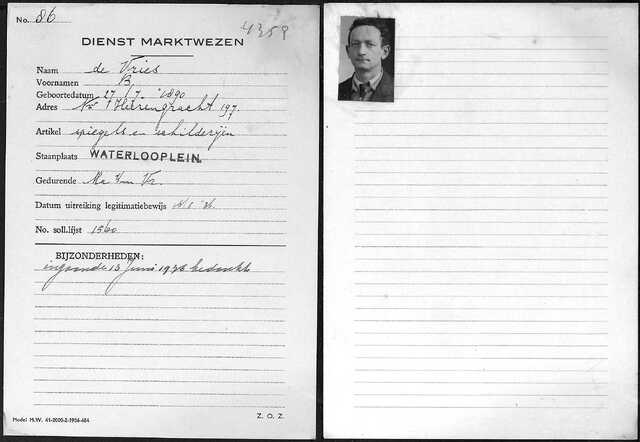 No. 86
4358
DIENST MARKTWEZEN
Naam de Vries
Voornamen B.
Geboortedatum 27 - 7 - 1890
Adres Nw Heerengracht 197.
Artikel spiegels en schilderijen
Staanplaats WATERLOOPLEIN.
Gedurende Ma t/m Vr.
Datum uitreiking legitimatiebewijs
No. soll.lijst 1560
BIJZONDERHEDEN:
ingaande 13 Juni 1938 bedankt
Model M.W. 41-2000-2-1936-484
Z. O. Z.